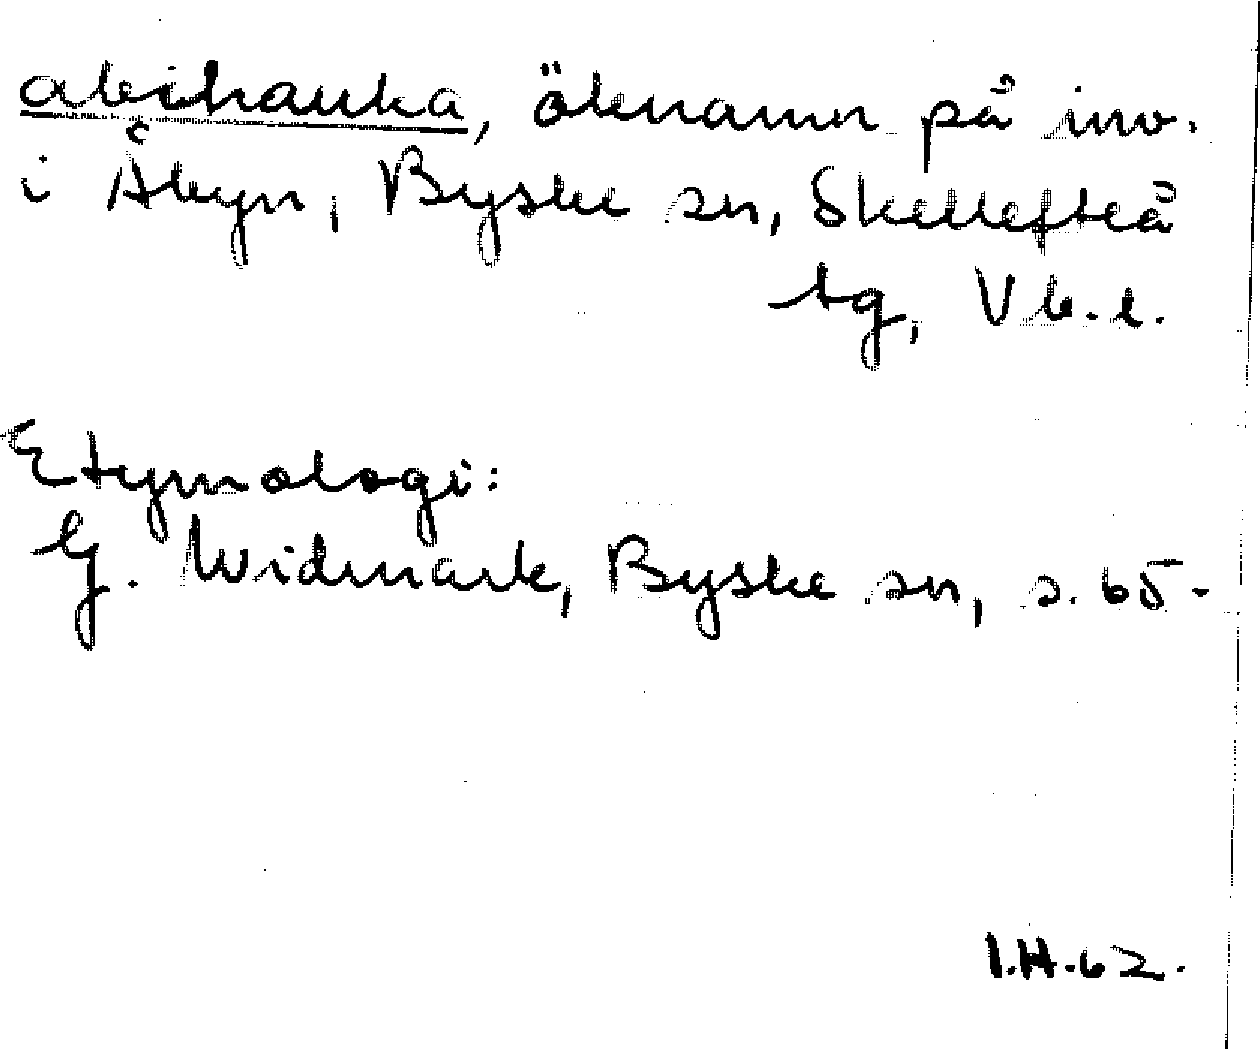 abihauka, öknamn på inv.
i Åbyn, Byske sn, Skellefteå
tg, Vb.l.
Etymologi:
G. Widmark, Byske sn, s. 65.
I.H.62.